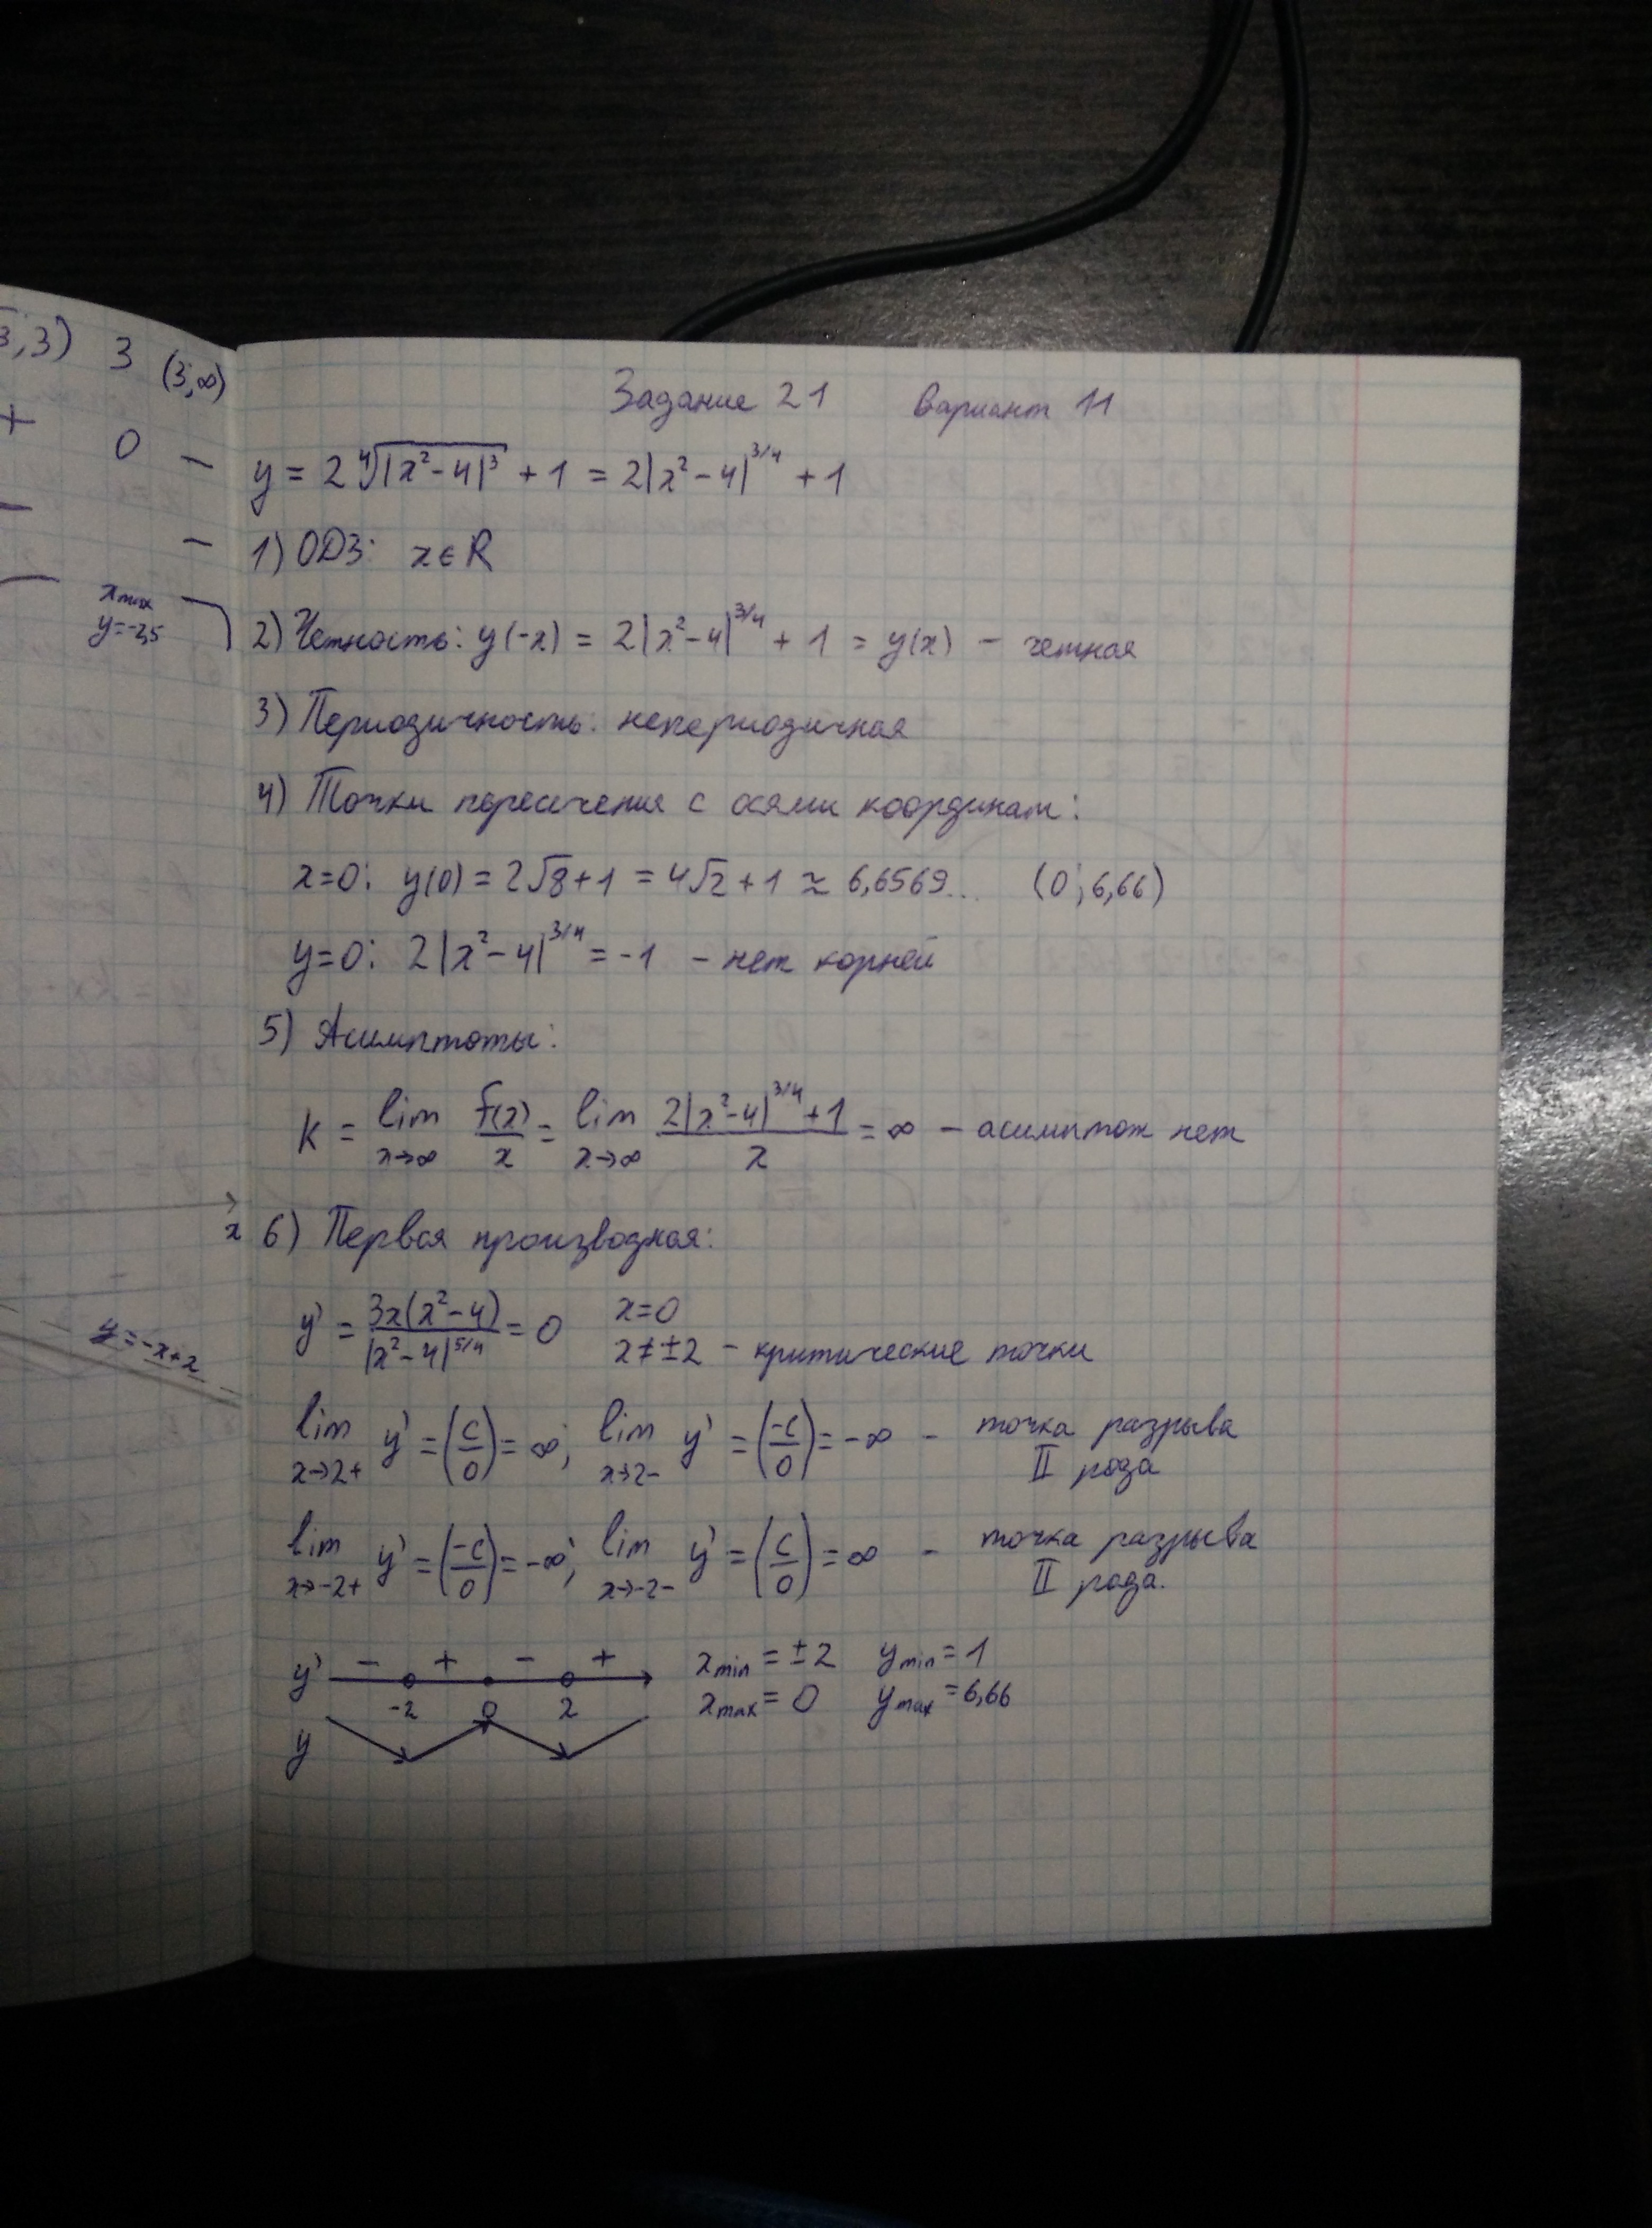 3,3) 3 (3;∞)
+ 0 −
− −
x max
y=-2,5
x
y=-x+2
Задание 21 Вариант 11
y = 2 ∜|x²-4|³ + 1 = 2|x²-4|^3/4 + 1
1) ОДЗ: x ∈ R
2) Четность: y(-x) = 2|x²-4|^3/4 + 1 = y(x) - четная
3) Периодичность: непериодичная
4) Точки пересечения с осями координат:
x=0: y(0) = 2√8+1 = 4√2+1 ≈ 6,6569... (0; 6,66)
y=0: 2|x²-4|^3/4 = -1 - нет корней
5) Асимптоты:
K = lim x→∞ f(x)/x = lim x→∞ (2|x²-4|^3/4 + 1)/x = ∞ - асимптот нет
6) Первая производная:
y' = 3x(x²-4)/|x²-4|^5/4 = 0 x=0
x≠±2 - критические точки
lim x→2+ y' = (c/0) = ∞; lim x→2- y' = (-c/0) = -∞ - точка разрыва
II рода
lim x→-2+ y' = (-c/0) = -∞; lim x→-2- y' = (c/0) = ∞ - точка разрыва
II рода.
y' − + − + xmin = ±2 ymin = 1
-2 0 2 xmax = 0 ymax = 6,66
y